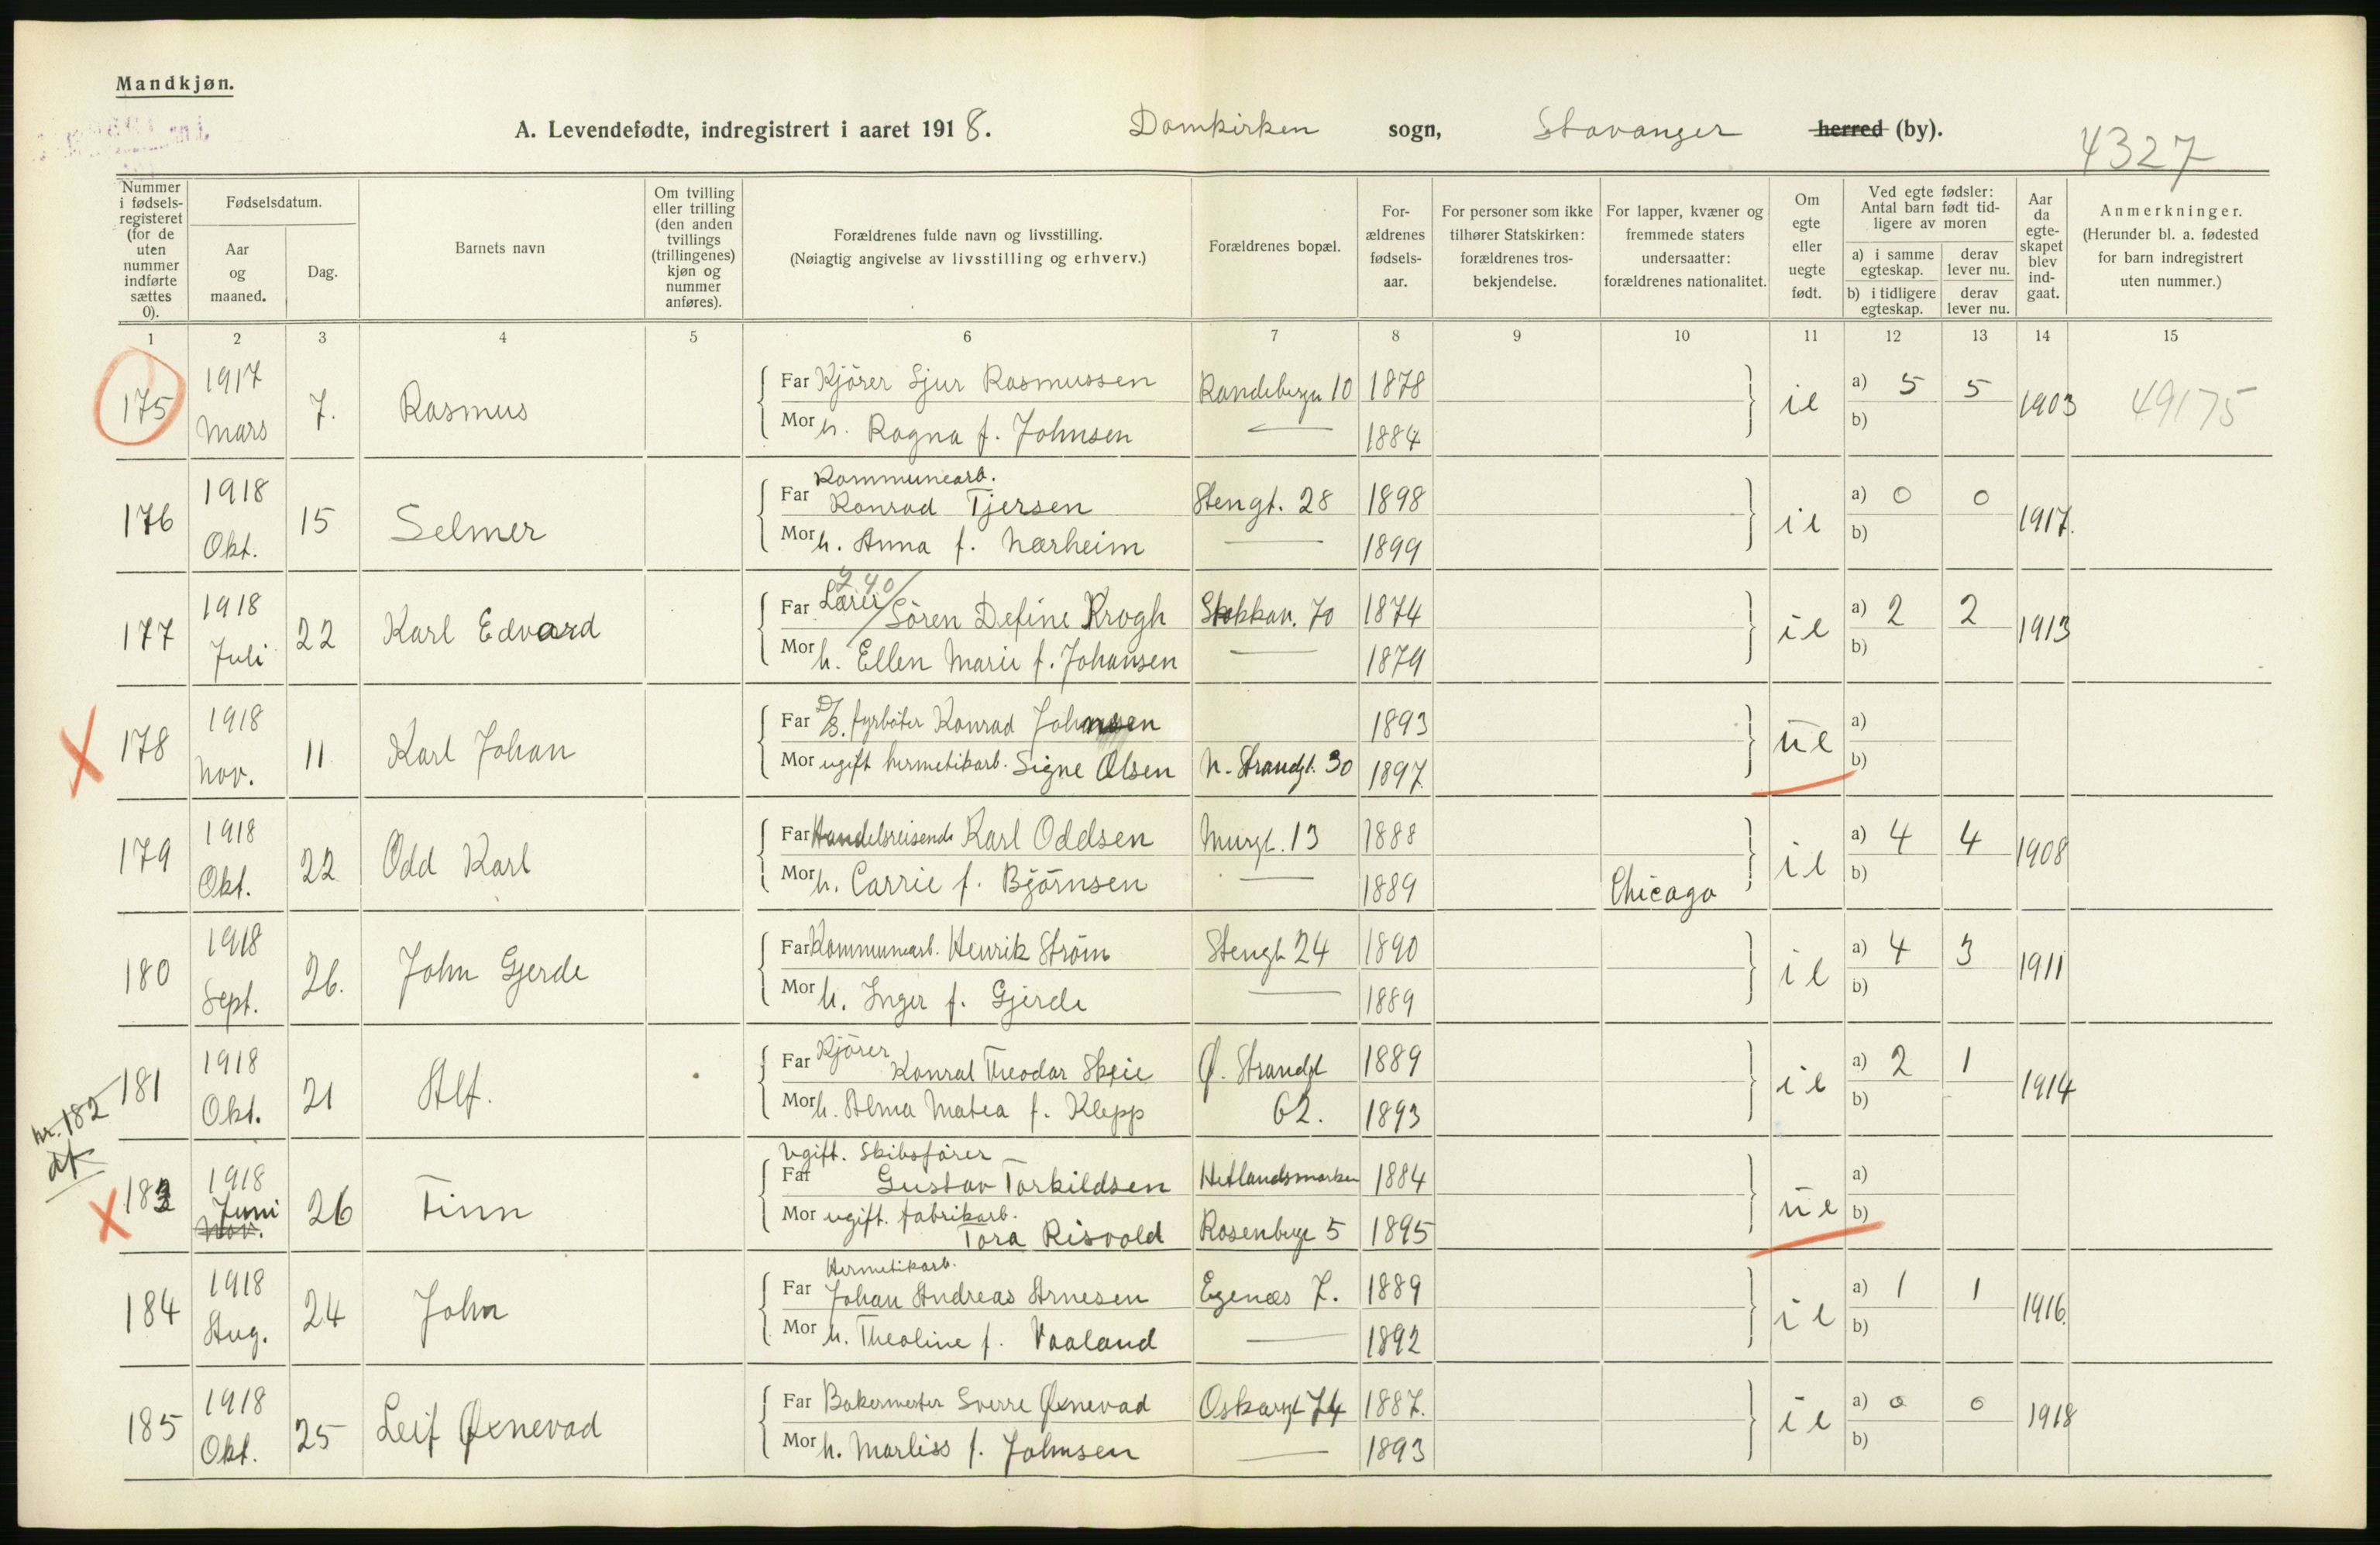 Mandkjøn.
A. Levendefødte, indregistrert i aaret 1918. Domkirken sogn, Stavanger herred (by).
4327
Nummer i fødsels-registeret (for de uten nummer indførte sættes 0).
Fødselsdatum.
Aar og maaned.
Dag.
Barnets navn
Om tvilling eller trilling (den anden tvillings (trillingenes) kjøn og nummer anføres).
Forældrenes fulde navn og livsstilling.
(Nøiagtig angivelse av livsstilling og erhverv.)
Forældrenes bopæl.
For-ældrenes fødsels-aar.
For personer som ikke tilhører Statskirken: forældrenes tros-bekjendelse.
For lapper, kvæner og fremmede staters undersaatter: forældrenes nationalitet.
Om egte eller uegte født.
Ved egte fødsler: Antal barn født tid-ligere av moren
a) i samme egteskap. derav lever nu.
b) i tidligere egteskap. derav lever nu.
Aar da egte-skapet blev ind-gaat.
Anmerkninger.
(Herunder bl. a. fødested for barn indregistrert uten nummer.)
1 2 3 4 5 6 7 8 9 10 11 12 13 14 15
175 1917 Mars 7. Rasmus
Far Kjörer Sjur Rasmussen Randebergu 10 1878
Mor h. Ragna f. Johnsen — 1884
ie a) 5 5 b) 1903 49175
176 1918 Okt. 15 Selmer
Kommunearb.
Far Konrad Tjersen Stengt. 28 1898
Mor h. Anna f. Nærheim — 1899
ie a) 0 0 b) 1917.
177 1918 Juli 22 Karl Edvard
Far Lærer Sören Define Krogh Stokkav. 70 1874
Mor h. Ellen Marie f. Johansen — 1879
ie a) 2 2 b) 1913
178 1918 Nov. 11 Karl Johan
Far D/S. fyrböter Konrad Johnsen 1893
Mor ugift hermetikarb. Signe Olsen N. Strandgt. 30 1897
ue a) b)
179 1918 Okt. 22 Odd Karl
Far Handelsreisende Karl Oddsen Murgt. 13 1888
Mor h. Carrie f. Björnsen — 1889 Chicago
ie a) 4 4 b) 1908
180 1918 Sept. 26. John Gjerde
Far Kommunearb. Henrik Ström Stengt 24 1890
Mor h. Inger f. Gjerde — 1889
ie a) 4 3 b) 1911
181 1918 Okt. 21 Alf.
Far Kjörer Konrad Theodor Skeie Ø. Strandgt 1889
Mor h. Alma Matea f. Klepp 62. 1893
ie a) 2 1 b) 1914
nr. 182
183 1918 Juni Nov. 26 Finn
Ugift. Skibsförer
Far Gustav Torkildsen Hetlandsmarken 1884
Mor ugift. fabrikarb. Tora Risvold Rosenbergt 5 1895
ue a) b)
184 1918 Aug. 24 John
Hermetikarb.
Far Johan Andreas Arnesen Egenæs 7. 1889
Mor h. Theoline f. Vaaland — 1892
ie a) 1 1 b) 1916.
185 1918 Okt. 25 Leif Øxnevad
Far Bakermester Sverre Øxnevad Oskarsgt 74 1887.
Mor h. Marliss f. Johnsen — 1893
ie a) 0 0 b) 1918